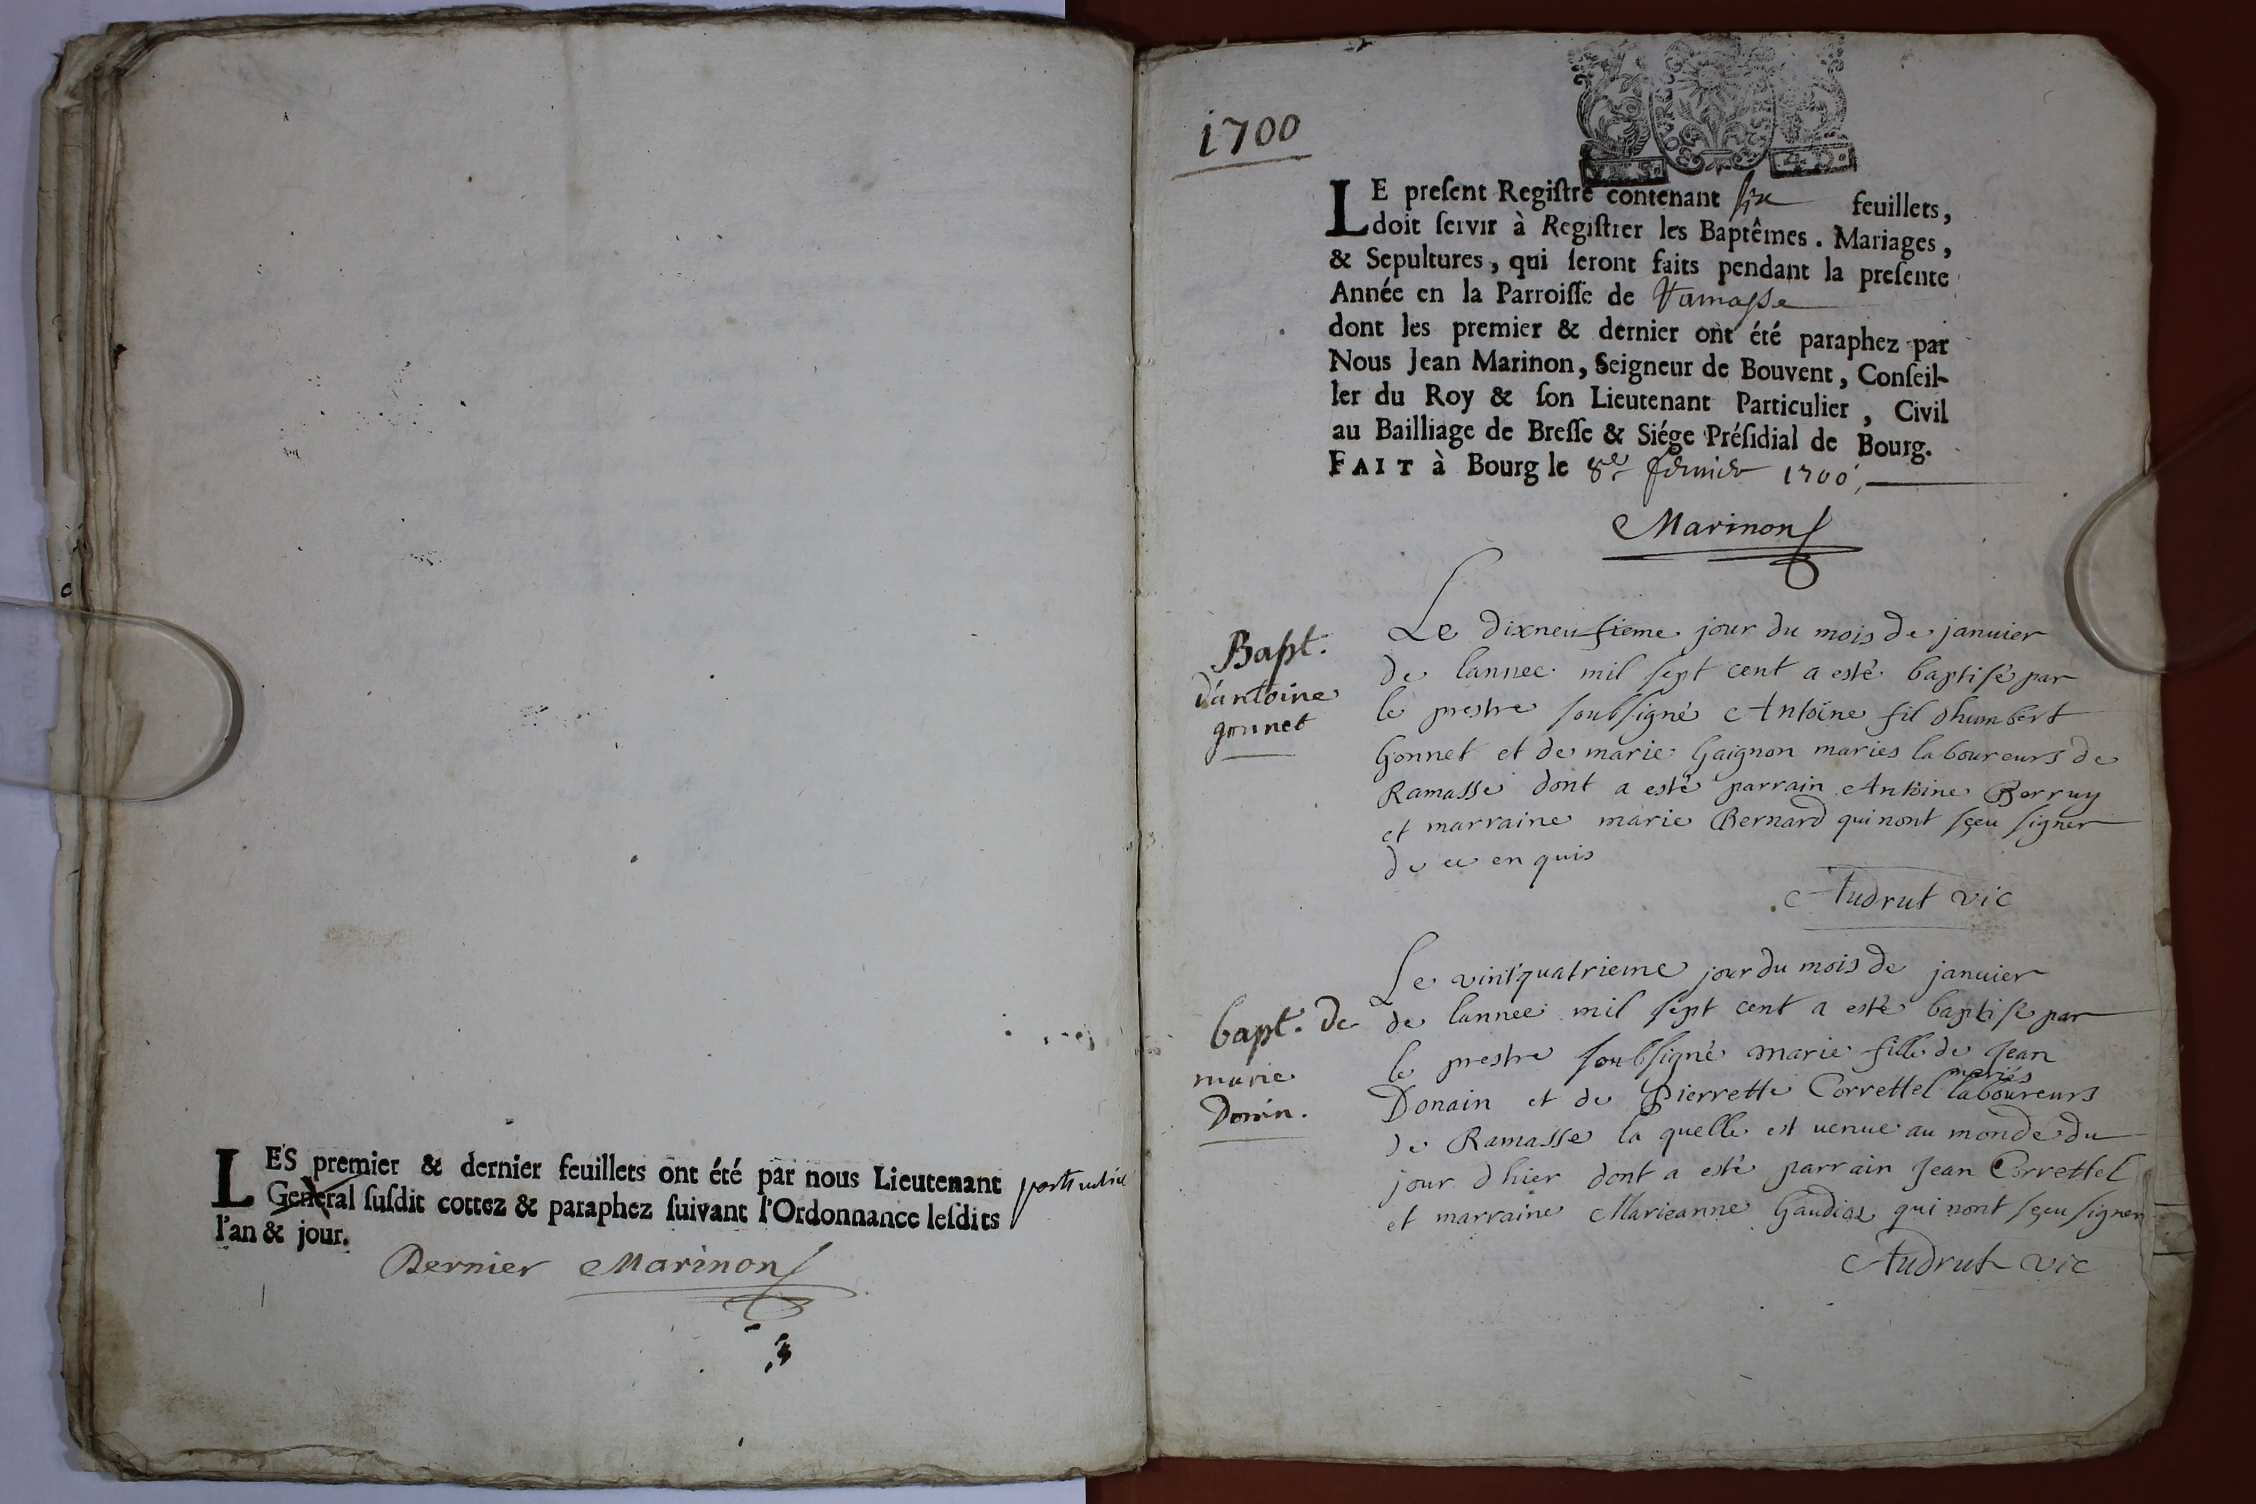 LES premier & dernier feuillets ont été par nous Lieutenant
General susdit cottez & paraphez suivant l'Ordonnance lesdits
l'an & jour.
Dernier Marinon
1700
LE present Registre contenant six feuillets,
doit servir à Registrer les Baptêmes. Mariages,
& Sepultures, qui seront faits pendant la presente
Année en la Parroisse de Ramasse
dont les premier & dernier ont été paraphez par
Nous Jean Marinon, Seigneur de Bouvent, Conseil-
ler du Roy & son Lieutenant Particulier, Civil
au Bailliage de Bresse & Siége Présidial de Bourg.
FAIT à Bourg le 8e fevrier 1700,
Marinon
Bapt.
d'antoine
gonnet
Le dixneufieme jour du mois de januier
de lannee mil sept cent a esté baptisé par
le prestre soubsigné Antoine fil dhumbert
Gonnet et de marie Gaignon maries laboureurs de
Ramasse dont a esté parrain Antoine Berruy
et marraine marie Bernard qui nont sçeu signer
de ce enquis
Audrut vic
bapt. de
marie
Donin.
Le vintquatrieme jour du mois de januier
de lannee mil sept cent a esté baptisé par
le prestre soubsigné marie fille de Jean
Donain et de Pierrette Correttel mariés laboureurs
de Ramasse la quelle est uenue au monde du
jour dhier dont a esté parrain Jean Correttel
et marraine Marieanne qui nont sçeu signer
Audrut vic